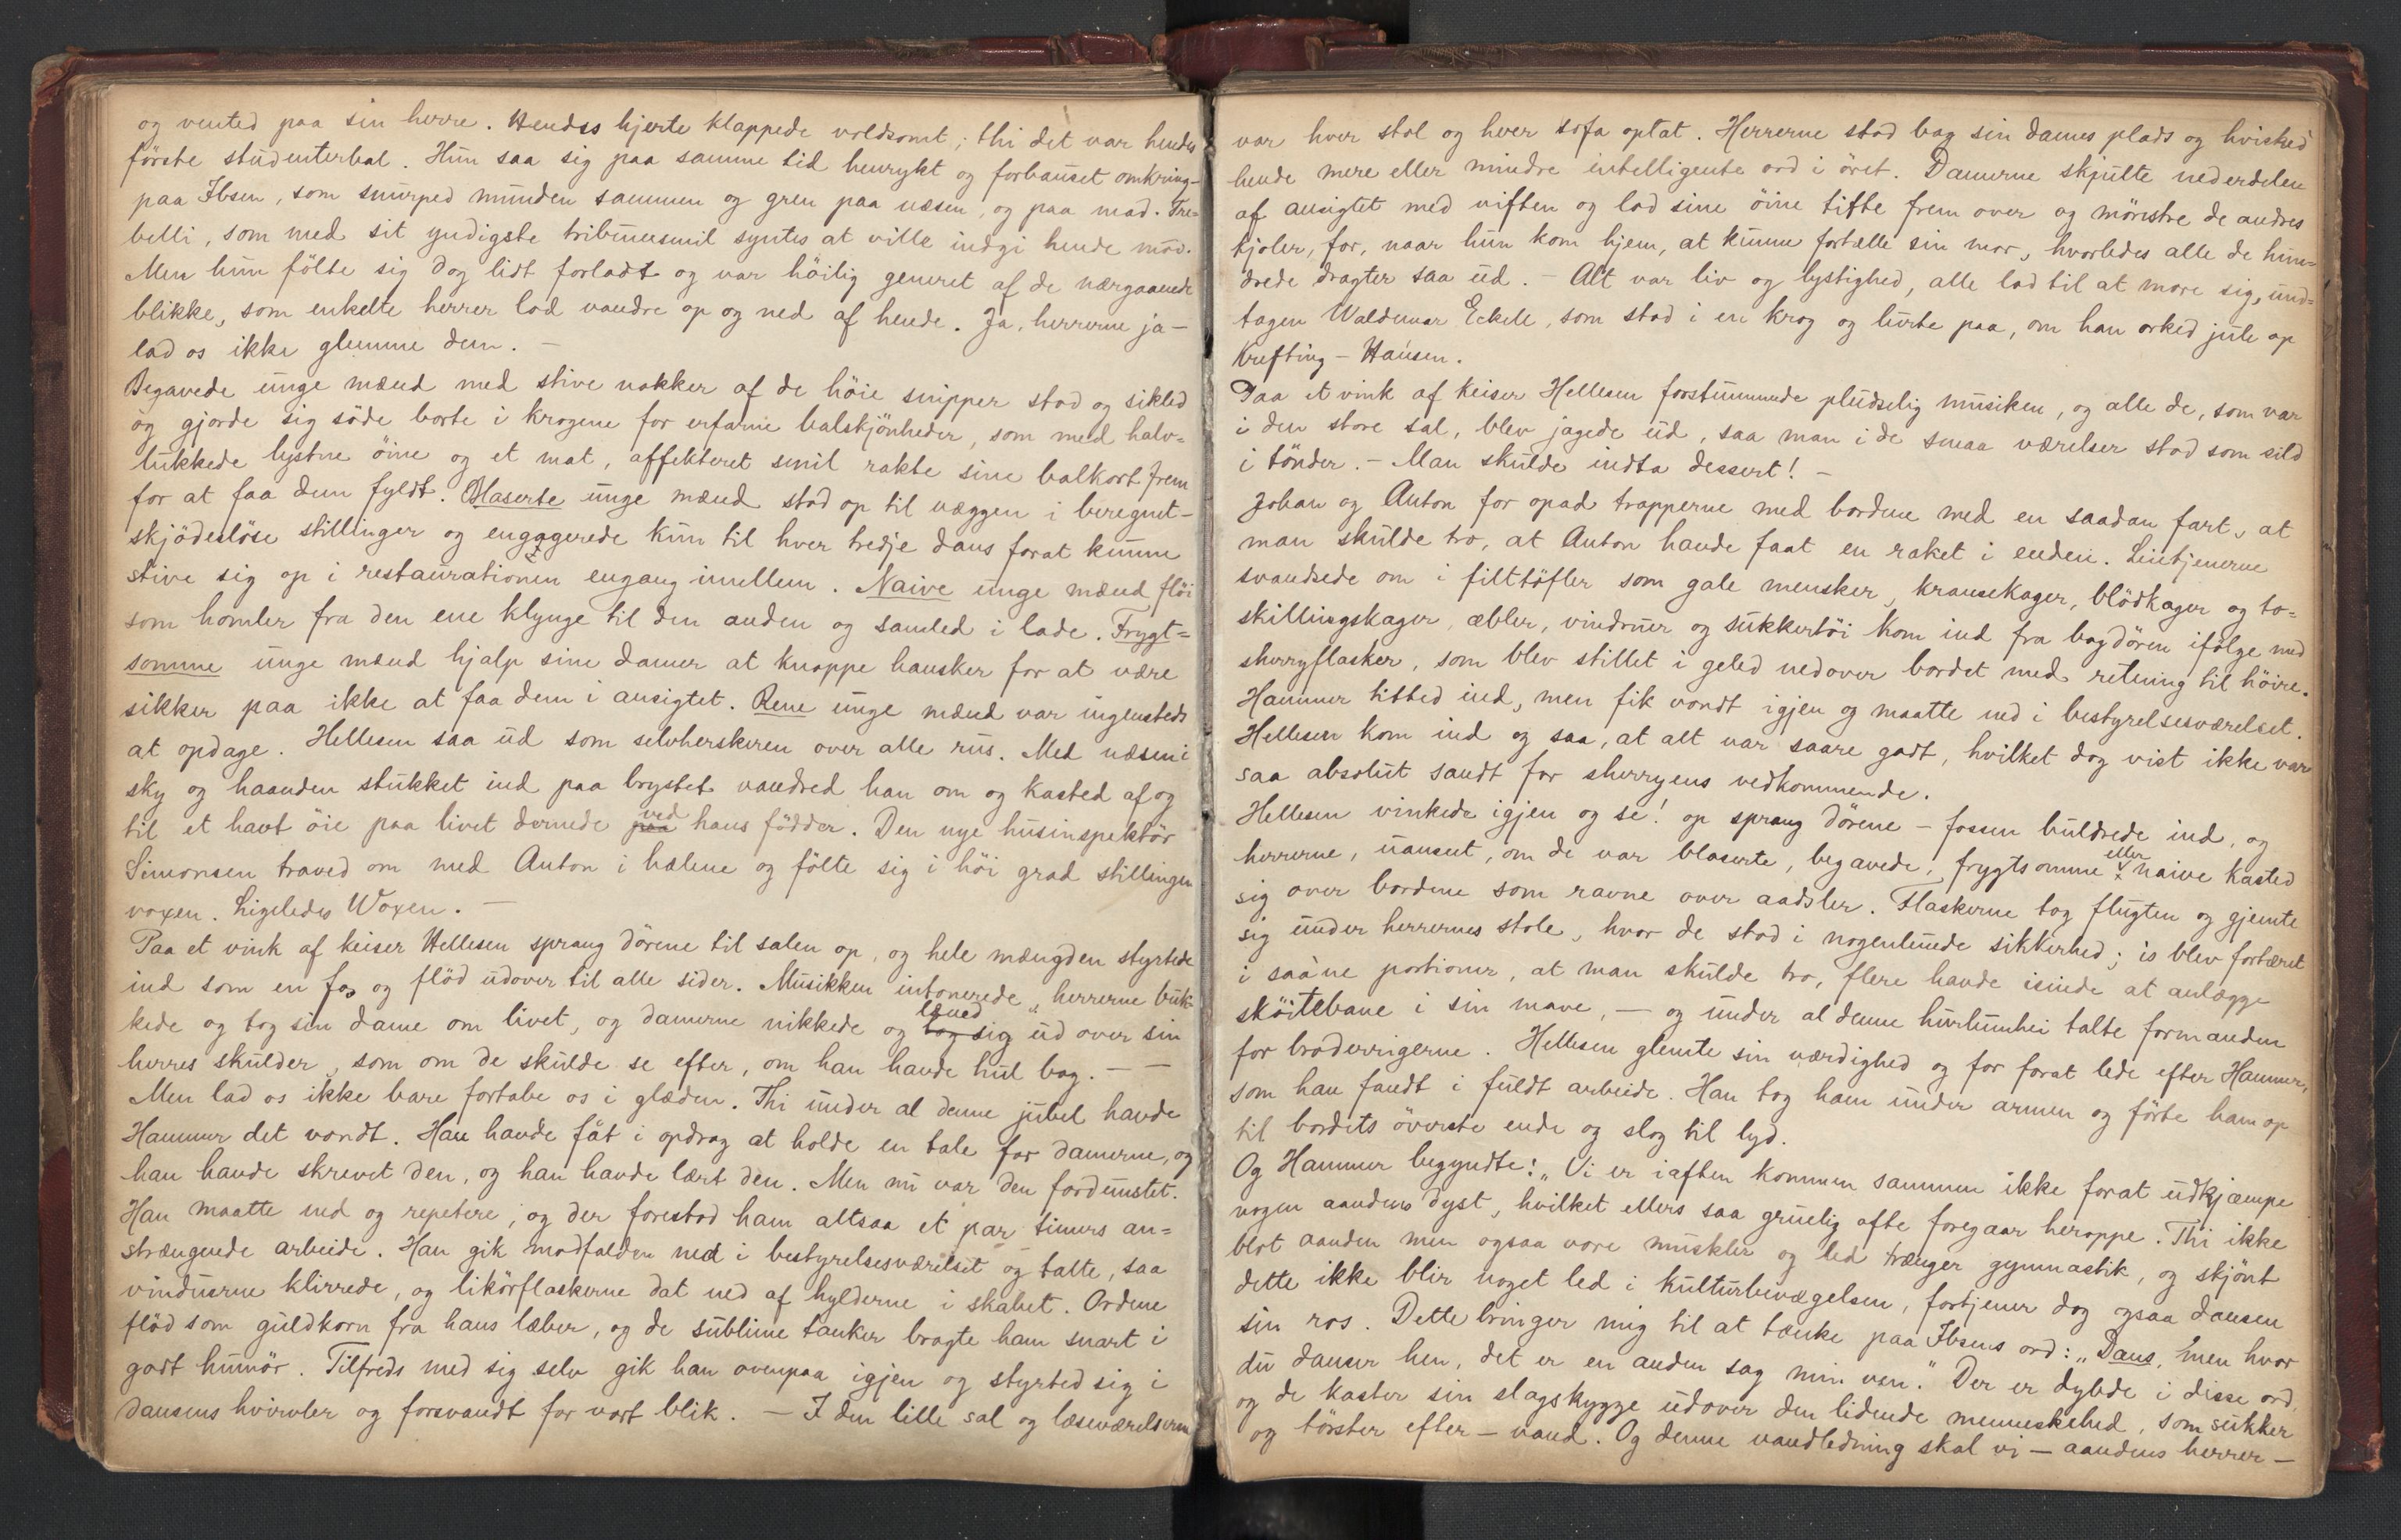 og vented paa sin herre. Hendes hjerte klappede voldsomt; thi det var hendes
förste studenterbal. Hun saa sig paa samme tid henrykt og forbauset omkring-
paa Ibsen, som snurped munden sammen og gren paa næsen, og paa mad. Tre=
belli, som med sit yndigste tribunesmil syntes at ville indgi hende mod.
Men hun fölte sig dog lidt forladt og var höilig generet af de nærgaaende
blikke, som enkelte herrer lod vandre op og ned af hende. Ja, herrerne ja –
lad os ikke glemme dem. –
Begavede unge mænd med stive nakker af de höie snipper stod og sikled
og gjorde sig söde borte i krogene for erfarne balskjönheder, som med halv=
lukkede lystne öine og et mat, affekteret smil rakte sine balkort frem
for at faa dem fyldt. Blaserte unge mænd stod op til væggen i beregnet-
skjödeslöse stillinger og engagerede kun til hver tredje dans forat kunne
stive sig op i restaurationen engang imellem. Naive unge mænd flöi
som homler fra den ene klynge til den anden og samled i lade. Frygt=
somme unge mænd hjalp sine damer at knappe hansker for at være
sikker paa ikke at faa dem i ansigtet. Rene unge mænd var ingensteds
at opdage. Hellesen saa ud som selvherskeren over alle rus. Med næsen i
sky og haanden stukket ind paa brystet vandred han om og kasted af og
til et havt öie paa livet dernede paa ved hans födder. Den nye husinspektör
Simonsen traved om med Anton i hælene og fölte sig i höi grad stillingen
voxen. Ligeledes Woxen. –
Paa et vink af keiser Hellesen sprang dörene til salen op, og hele mængden styrtede
ind som en fos og flöd udover til alle sider. Musikken intonerede, herrerne buk-
kede og tog sin dame om livet, og damerne nikkede og tog læned sig ud over sin
herres skulder, som om de skulde se efter, om han havde hul bag. – –
Men lad os ikke bare fortabe os i glæden. Thi under al denne jubel havde
Hammer det vondt. Han havde fåt i opdrag at holde en tale for damerne, og
han havde skrevet den, og han havde lært den. Men nu var den fordunstet.
Han maatte ned og repetere, og der forestod ham altsaa et par timers an=
strængende arbeide. Han gik modfalden ned i bestyrelsesværelset og talte, saa
vinduerne klirrede, og likörflaskerne dat ned af hylderne i skabet. Ordene
flöd som guldkorn fra hans læber, og de sublime tanker bragte ham snart i
godt humör. Tilfreds med sig selv gik han ovenpaa igjen og styrted sig i
dansens hvirvler og forsvandt for vort blik. – I den lille sal og læseværelserne
var hver stol og hver sofa optat. Herrerne stod bag sin dames plads og hvisked
hende mere eller mindre intelligente ord i öret. Damerne skjulte nederdelen
af ansigtet med viften og lod sine öine titte frem over og mönstre de andres
kjoler, for, naar hun kom hjem, at kunne fortælle sin mor, hvorledes alle de hun=
drede dragter saa ud. – Alt var liv og lystighed, alle lod til at more sig, und=
tagen Waldemar Eckell, som stod i en krog og lurte paa, om han orked jule op
Krefting-Hansen.
Paa et vink af keiser Hellesen forstummede pludselig musiken, og alle de, som var
i den store sal, blev jagede ud, saa man i de smaa værelser stod som sild
i tönder. – Man skulde indta dessert! –
Johan og Anton for opad trapperne med bordene med en saadan fart, at
man skulde tro, at Anton havde faat en raket i enden. Leietjenerne
svandsede om i filttöfler som gale mensker, kransekager, blödkager og to=
skillingskager, æbler, vindruer og sukkertöi kom ind fra bagdören ifölge med
sherryflasker, som blev stillet i geled nedover bordet med retning til höire.
Hammer titted ind, men fik vondt igjen og maatte ned i bestyrelsesværelset.
Hellesen kom ind og saa, at alt var saare godt, hvilket dog vist ikke var
saa absolut sandt for sherryens vedkommende.
Hellesen vinkede igjen og se! op sprang dörene – fossen buldrede ind, og
herrerne, uanseet, om de var blaserte, begavede, frygtsomme eller naive kasted
sig over bordene som ravne over aadsler. Flaskerne tog flugten og gjemte
sig under herrernes stole, hvor de stod i nogenlunde sikkerhed; is blev fortæret
i saàne portioner, at man skulde tro, flere havde isinde at anlægge
sköitebane i sin mave, – og under al denne hurlumhei talte formanden
for broderrigerne. Hellesen glemte sin værdighed og for forat lede efter Hammer,
som han fandt i fuldt arbeide. Han tog ham under armen og förte ham op
til bordets överste ende og slog til lyd.
Og Hammer begyndte: „Vi er iaften kommen sammen ikke forat udkjæmpe
nogen aandens dyst, hvilket ellers saa gruelig ofte foregaar heroppe. Thi ikke
blot aanden men ogsaa vore muskler og led trænger gymnastik, og skjönt
dette ikke blir noget led i kulturbevægelsen, fortjener dog ogsaa dansen
sin ros. Dette bringer mig til at tænke paa Ibsens ord: „Dans, men hvor
du danser hen, det er en anden sag min ven." Der er dybde i disse ord,
og de kaster sin slagskygge udover den lidende menneskehed, som sukker
og törster efter – vand. Og denne vandledning skal vi – aandens herrer –